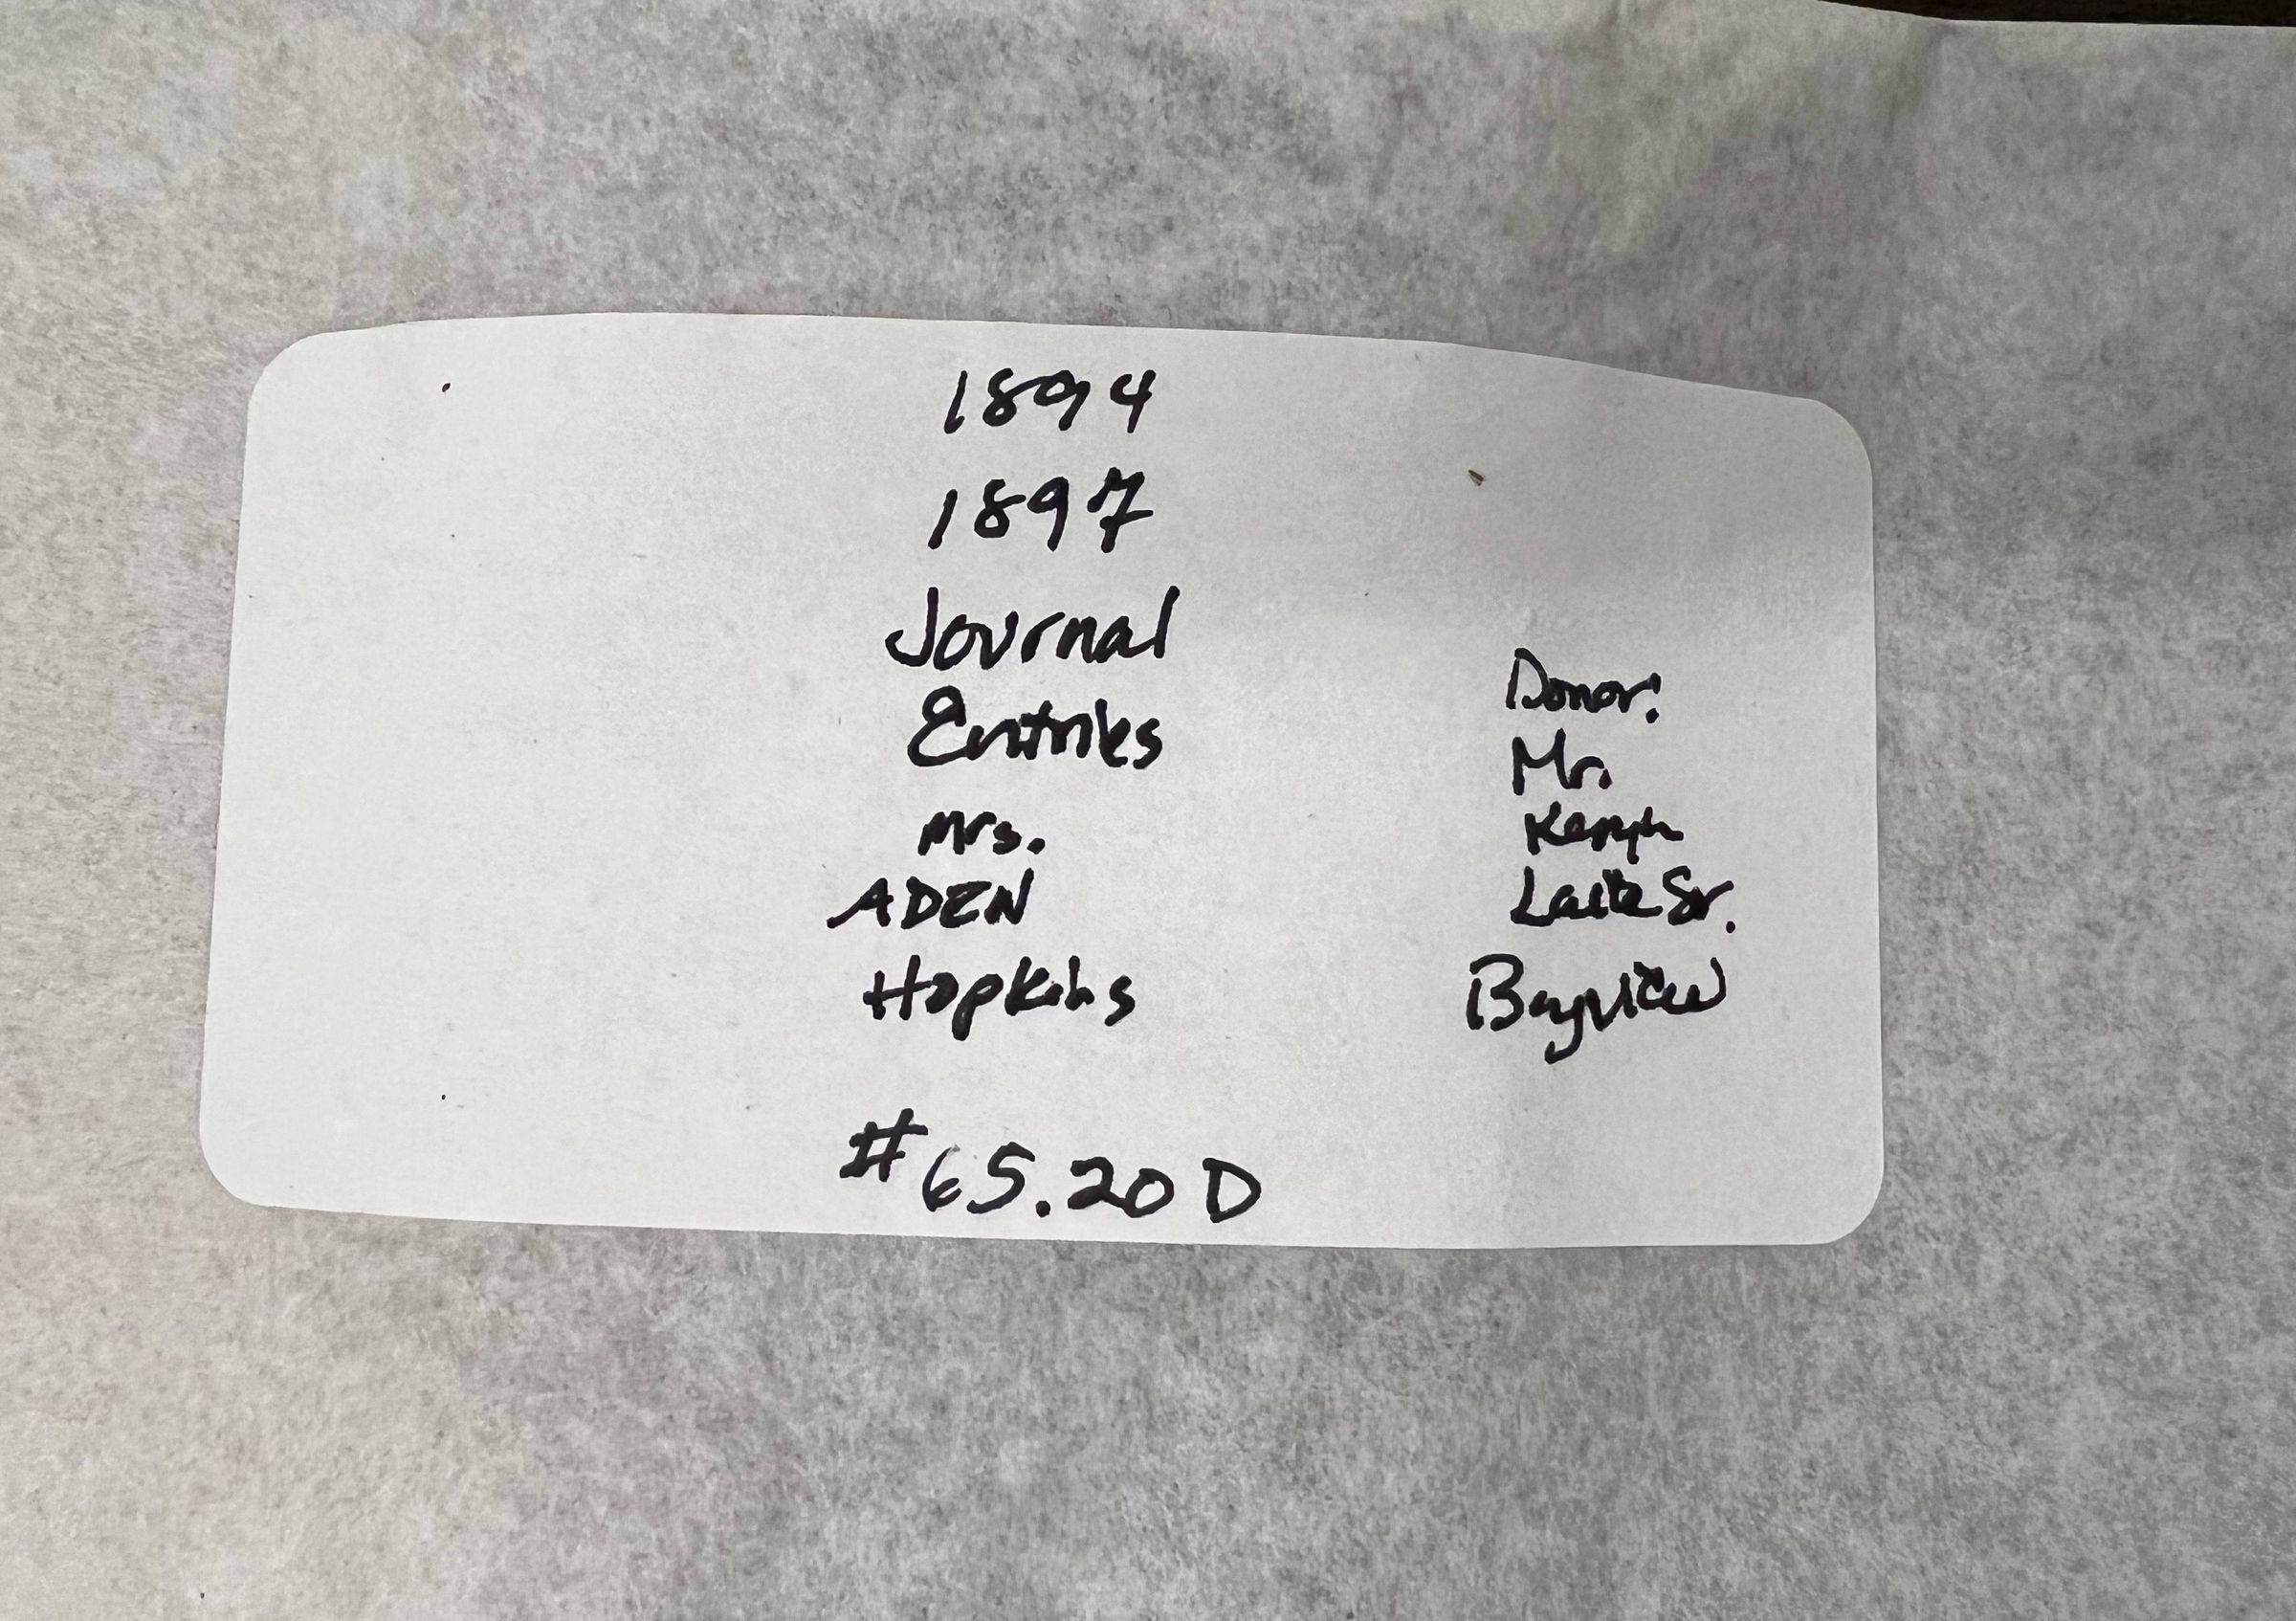 1894
1897
Journal
Entries
Mrs.
ADEN
Hopkins
#65.20 D
Donor:
Mr.
Sr.
Bayview